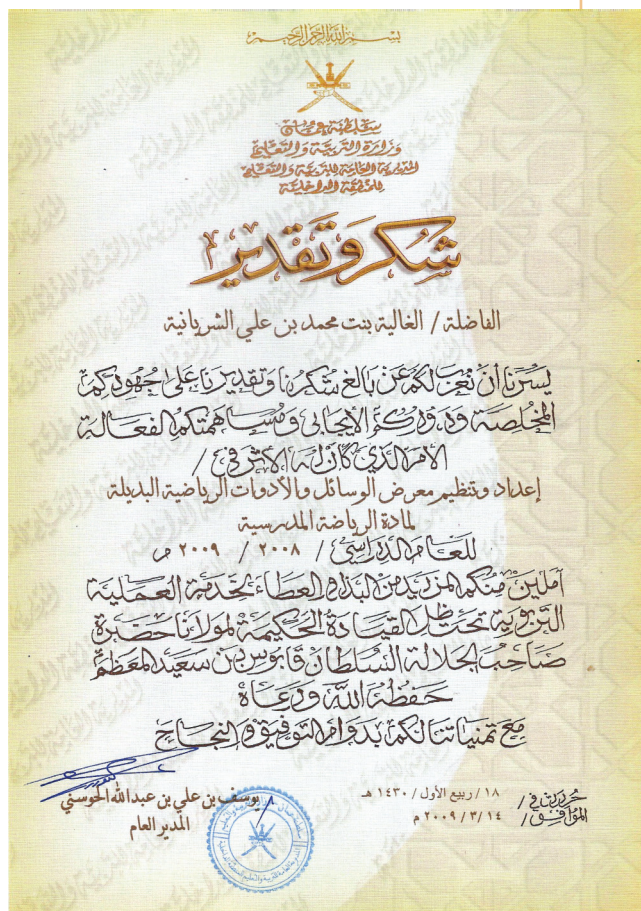 بسم الله الرحمن الرحيم
سلطنة عمان
وزارة التربية والتعليم
المديرية العامة للتربية والتعليم
للمنطقة الداخلية
شكر وتقدير
الفاضلة / الغالية بنت محمد بن علي الشريانية
يسرنا أن نعرب لكم عن بالغ شكرنا وتقديرنا على جهودكم
المخلصة ودوركم الإيجابي ومساهمتكم الفعالة
الأمر الذي كان له الأثر في /
إعداد وتنظيم معرض الوسائل والأدوات الرياضية البديلة
لمادة الرياضة المدرسية
للعام الدراسي / ٢٠٠٨ / ٢٠٠٩ م
آملين منكم المزيد من البذل والعطاء لخدمة العملية
التربوية تحت ظل القيادة الحكيمة لمولانا حضرة
صاحب الجلالة السلطان قابوس بن سعيد المعظم
حفظه الله ورعاه
مع تمنياتنا لكم بدوام التوفيق والنجاح
حررت في / ١٨ / ربيع الأول / ١٤٣٠ هـ
الموافق / ١٤ / ٣ / ٢٠٠٩ م
يوسف بن علي بن عبدالله الحوسني
المدير العام